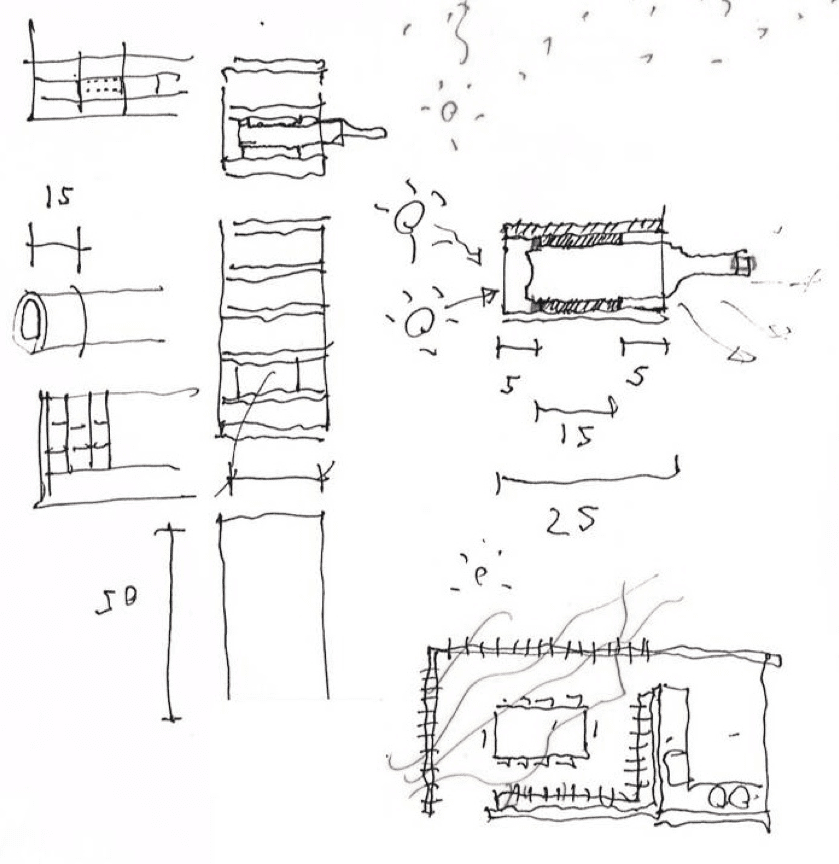 15
5
5
15
25
50